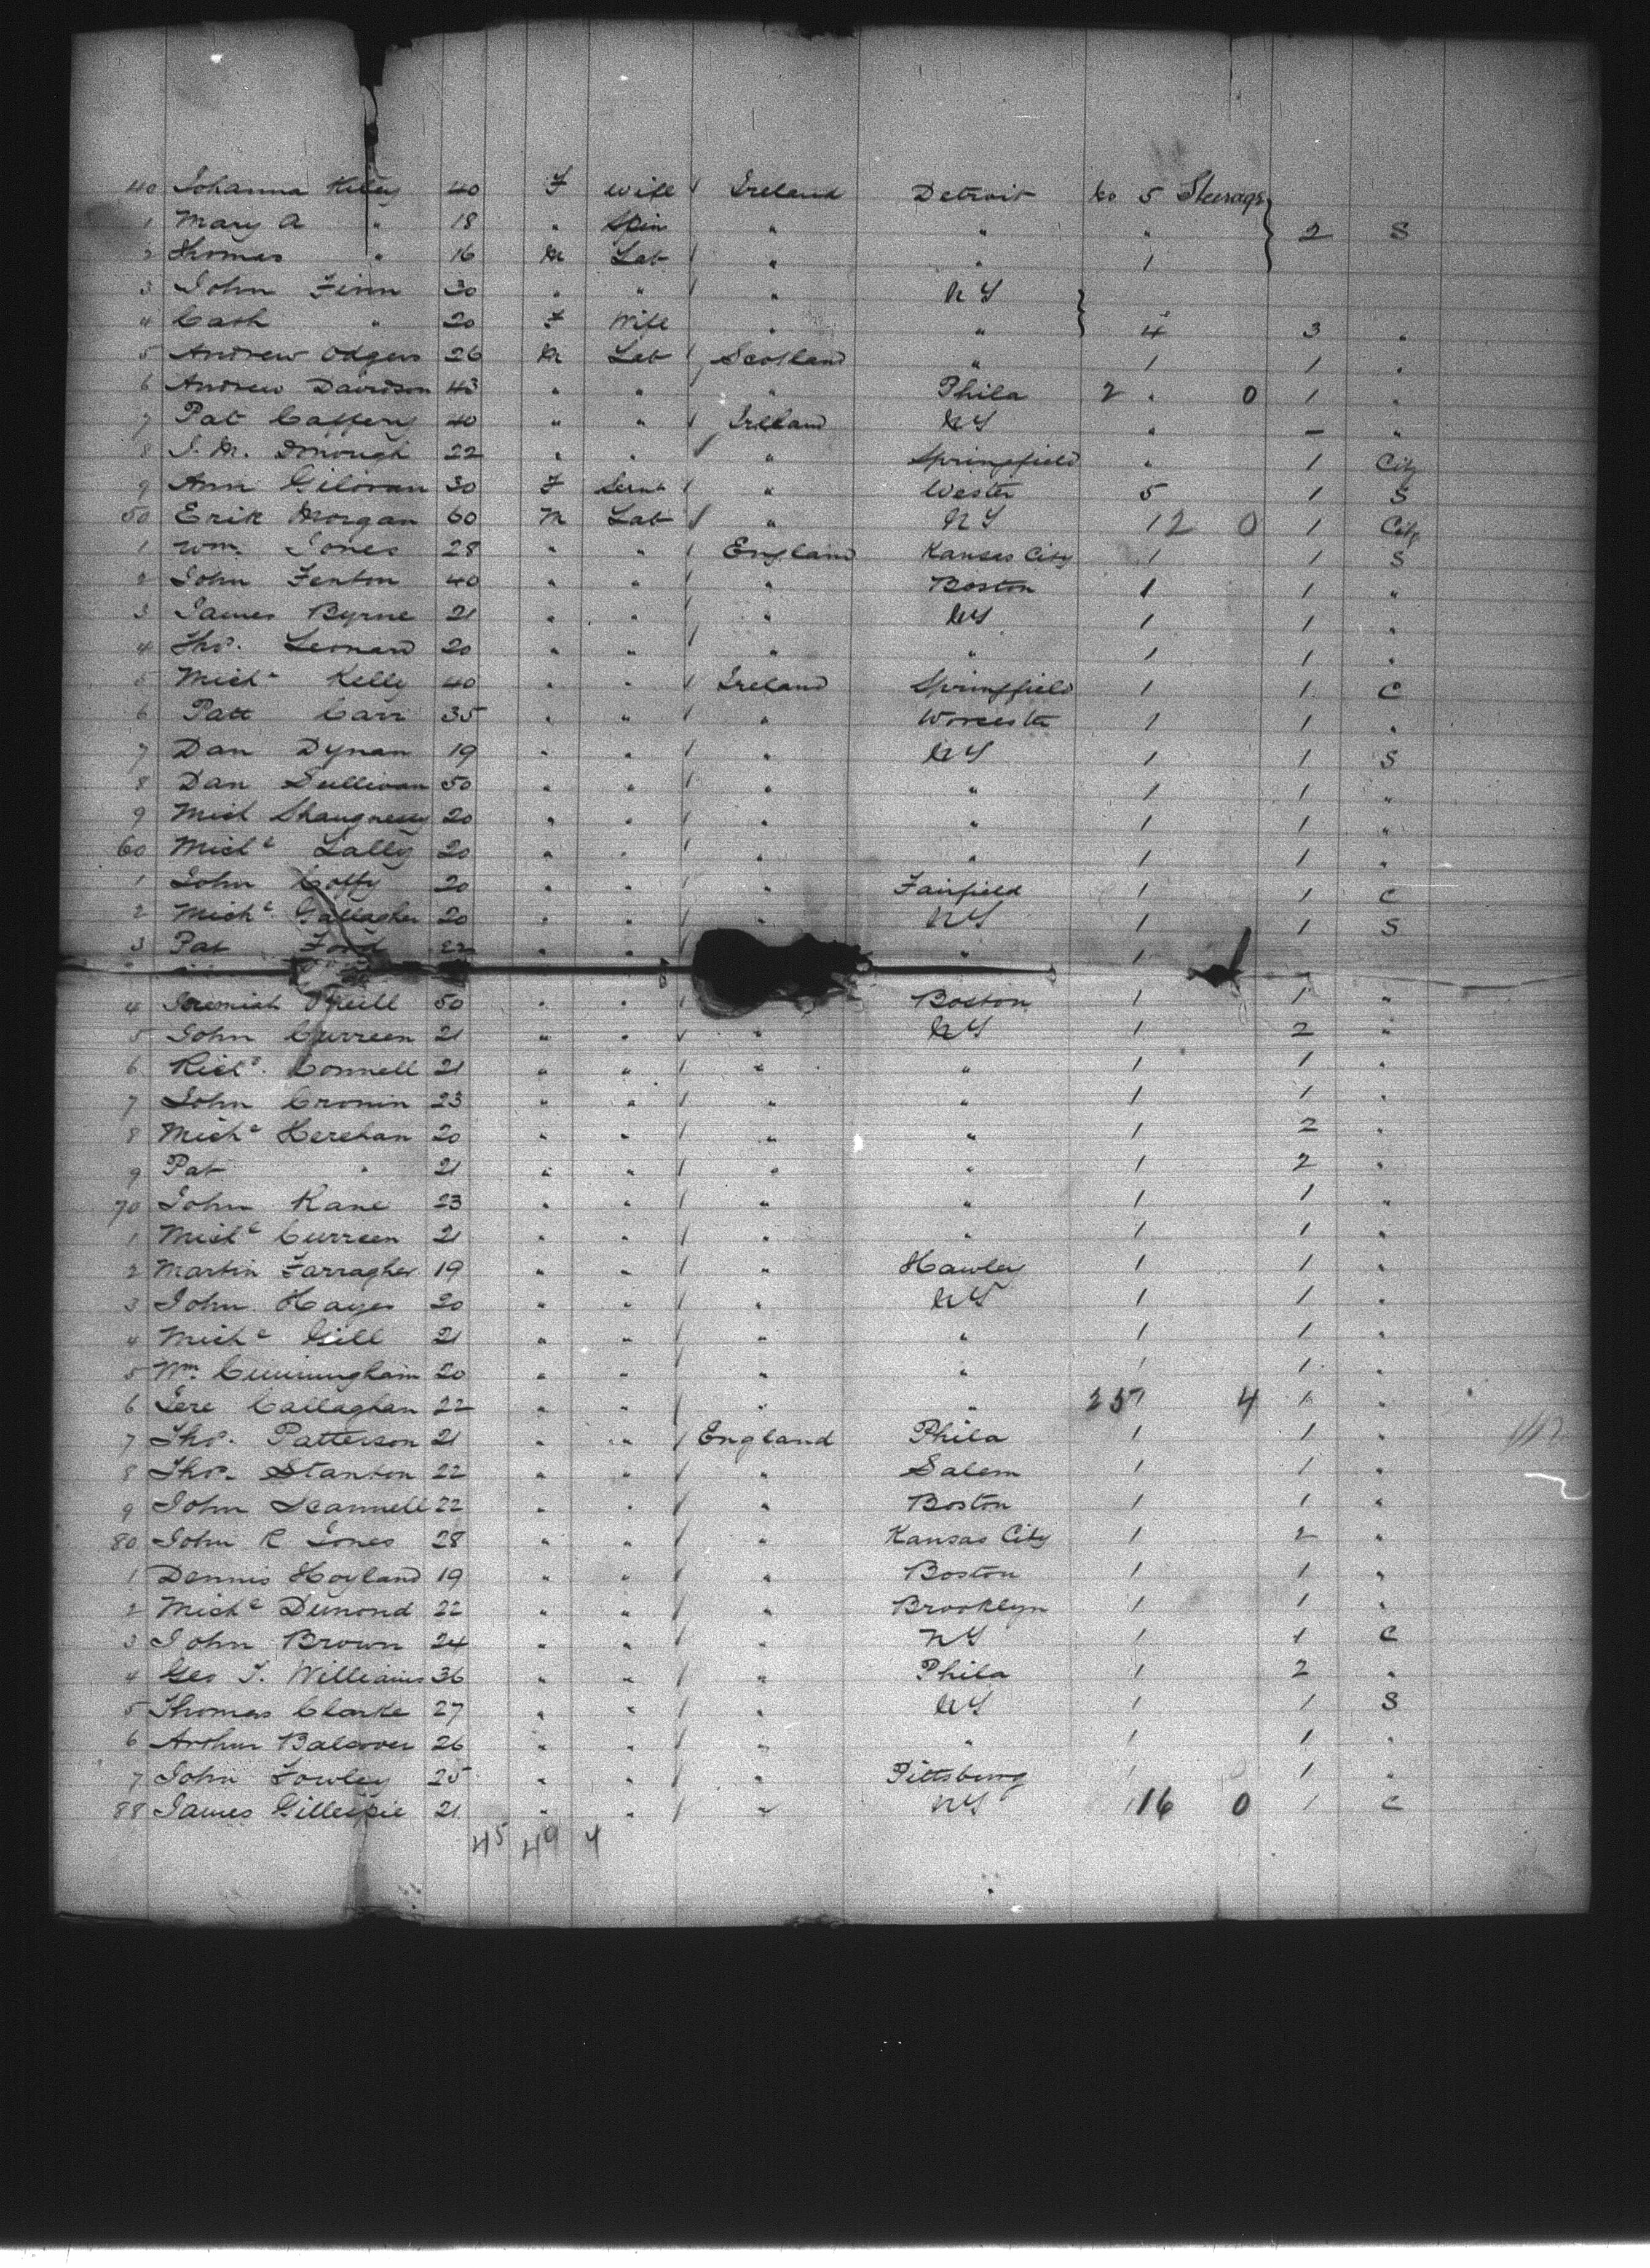 40 Johanna Kiley 40 F Wife / Ireland Detroit No 5 Steerage
1 Mary A " 18 " Spin " " " } 2 S
2 Thomas " 16 M Lab / " " 1
3 John Finn 30 " " / " NY
4 Cath " 20 F Wife " " } 4 3 "
5 Andrew Odgers 26 M Lab / Scotland " 1 1 "
6 Andrew Davidson 43 " " / " Phila 2 " 0 1 "
7 Pat Caffery 40 " " / Ireland NY " – "
8 J. M. Donough 22 " " / " Springfield " 1 City
9 Ann Giloran 30 F Servt / " Wester 5 1 S
50 Erik Morgan 60 M Lab / " NY 12 0 1 City
1 Wm. Jones 28 " " / England Kansas City 1 1 S
2 John Fenton 40 " " / " Boston 1 1 "
3 James Byrne 21 " " / " NY 1 1 "
4 Thos. Leonard 20 " " / " " 1 1 "
5 Michl Kelly 40 " " / Ireland Springfield 1 1 C
6 Patt Carr 35 " " / " Worcester 1 1 "
7 Dan Dynan 19 " " / " NY 1 1 S
8 Dan Sullivan 50 " " / " " 1 1 "
9 Mich Shaugnessy 20 " " / " " 1 1 "
60 Michl Lally 20 " " / " " 1 1 "
1 John Coffy 20 " " / " Fairfield 1 1 C
2 Michl Gallagher 20 " " / " NY 1 1 S
3 Pat Ford 22 " " / " 1
4 Jeremiah O'Neill 50 " " / Boston 1 1 "
5 John Curreen 21 " " / " NY 1 2 "
6 Richd. Connell 21 " " / " " 1 1 "
7 John Cronin 23 " " / " " 1 1 "
8 Michl Kerehan 20 " " / " " 1 2 "
9 Pat " 21 " " / " " 1 2 "
70 John Kane 23 " " / " " 1 1 "
1 Michl Curreen 21 " " / " " 1 1 "
2 Martin Farragher 19 " " / " Hawley 1 1 "
3 John Hayes 20 " " / " NY 1 1 "
4 Michl Gill 21 " " / " " 1 1 "
5 Wm. Cunningham 20 " " / " " 1 1 "
6 Jere Callaghan 22 " " / " " 257 4 1 "
7 Thos. Patterson 21 " " / England Phila 1 1 "
8 Thos. Stanton 22 " " / " Salem 1 1 "
9 John Scannell 22 " " / " Boston 1 1 "
80 John R Jones 28 " " / " Kansas City 1 2 "
1 Dennis Hoyland 19 " " / " Boston 1 1 "
2 Michl Dimond 22 " " / " Brooklyn 1 1 "
3 John Brown 24 " " / " NY 1 1 C
4 Geo T. Williams 36 " " / " Phila 1 2 "
5 Thomas Clarke 27 " " / " NY 1 1 S
6 Arthur Balsover 26 " " / " " 1 1 "
7 John Fowley 25 " " / " Pittsburg 1 1 "
88 James Gillespie 21 " " / " NY 16 0 1 C
45 49 4